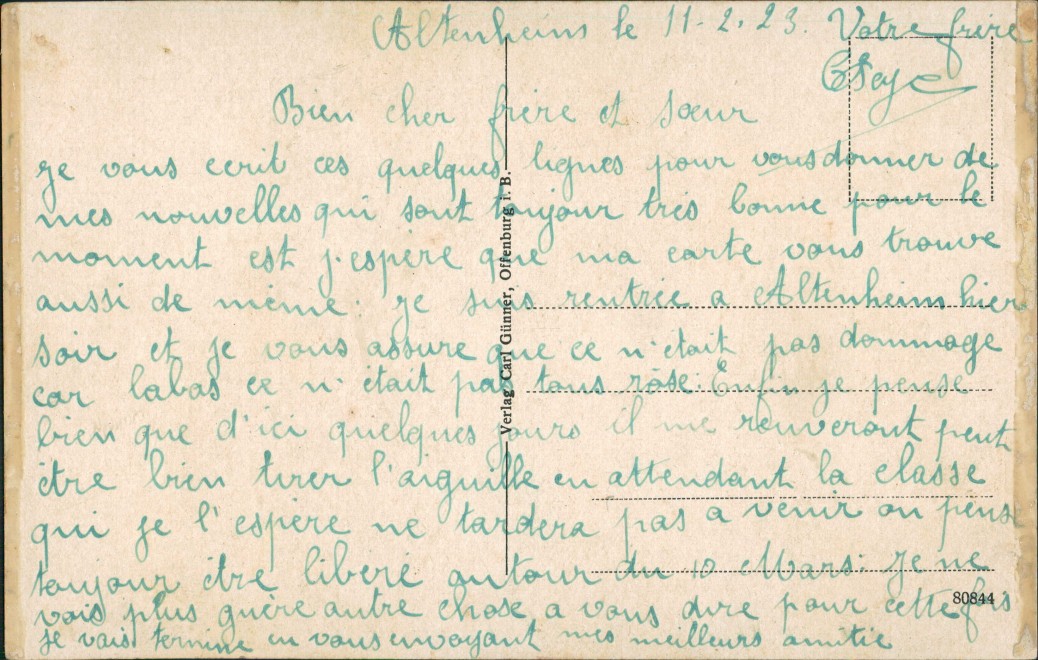 Altenheim le 11-2.23. Votre frère
Bien cher frère et sœur
je vous ecrit ces quelques lignes pour vous donner de
mes nouvelles qui sont toujour très bonne pour le
moment est j'espère que ma carte vous trouve
aussi de même. je suis rentrée a Altenheim hier
soir et je vous assure que ce n'était pas dommage
car labas ce n'était pas tous rose. Enfin je pense
bien que d'ici quelques jours il me reuveront peut
être bien tirer l'aiguille en attendant la classe
qui je l'espère ne tardera pas a venir on pense
toujour être liberé autour du 10 Mars. Je ne
vois plus guère autre chose a vous dire pour cette fois
je vais termine en vous envoyant mes meilleurs amitie
Verlag Carl Günner, Offenburg i. B.
80844